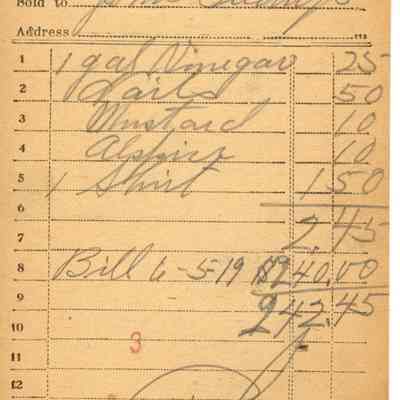 Sold to John
Address
1 1 gal Vinegar 25
2 Nails 50
3 Mustard 10
4 Alspice 10
5 1 Shirt 1 50
6
7 2.45
8 Bill 6-5-19 $240.00
9 242.45
10
3
11
12